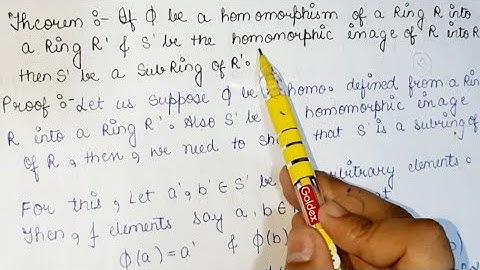 Theorem :- If ϕ be a homomorphism of a Ring R into
a Ring R' & S' be the homomorphic image of R into R
then S' be a SubRing of R'.
Proof :- Let us suppose ϕ be homo. defined from a Ring
R into a Ring R'. Also S' be homomorphic image
of R, then, we need to that S' is a subring of
For this, Let a', b' ∈ S' be arbitrary elements.
Then, ∫ elements say a, b ∈
ϕ(a) = a' & ϕ(b)
Goldex